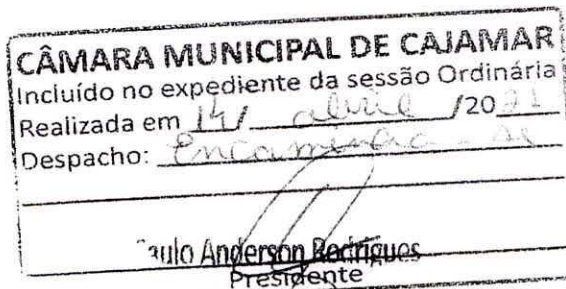 CÂMARA MUNICIPAL DE CAJAMAR
Incluído no expediente da sessão Ordinária
Realizada em 14/ abril /2021
Despacho: Encaminha-se
aulo Anderson Rodrigues
Presidente